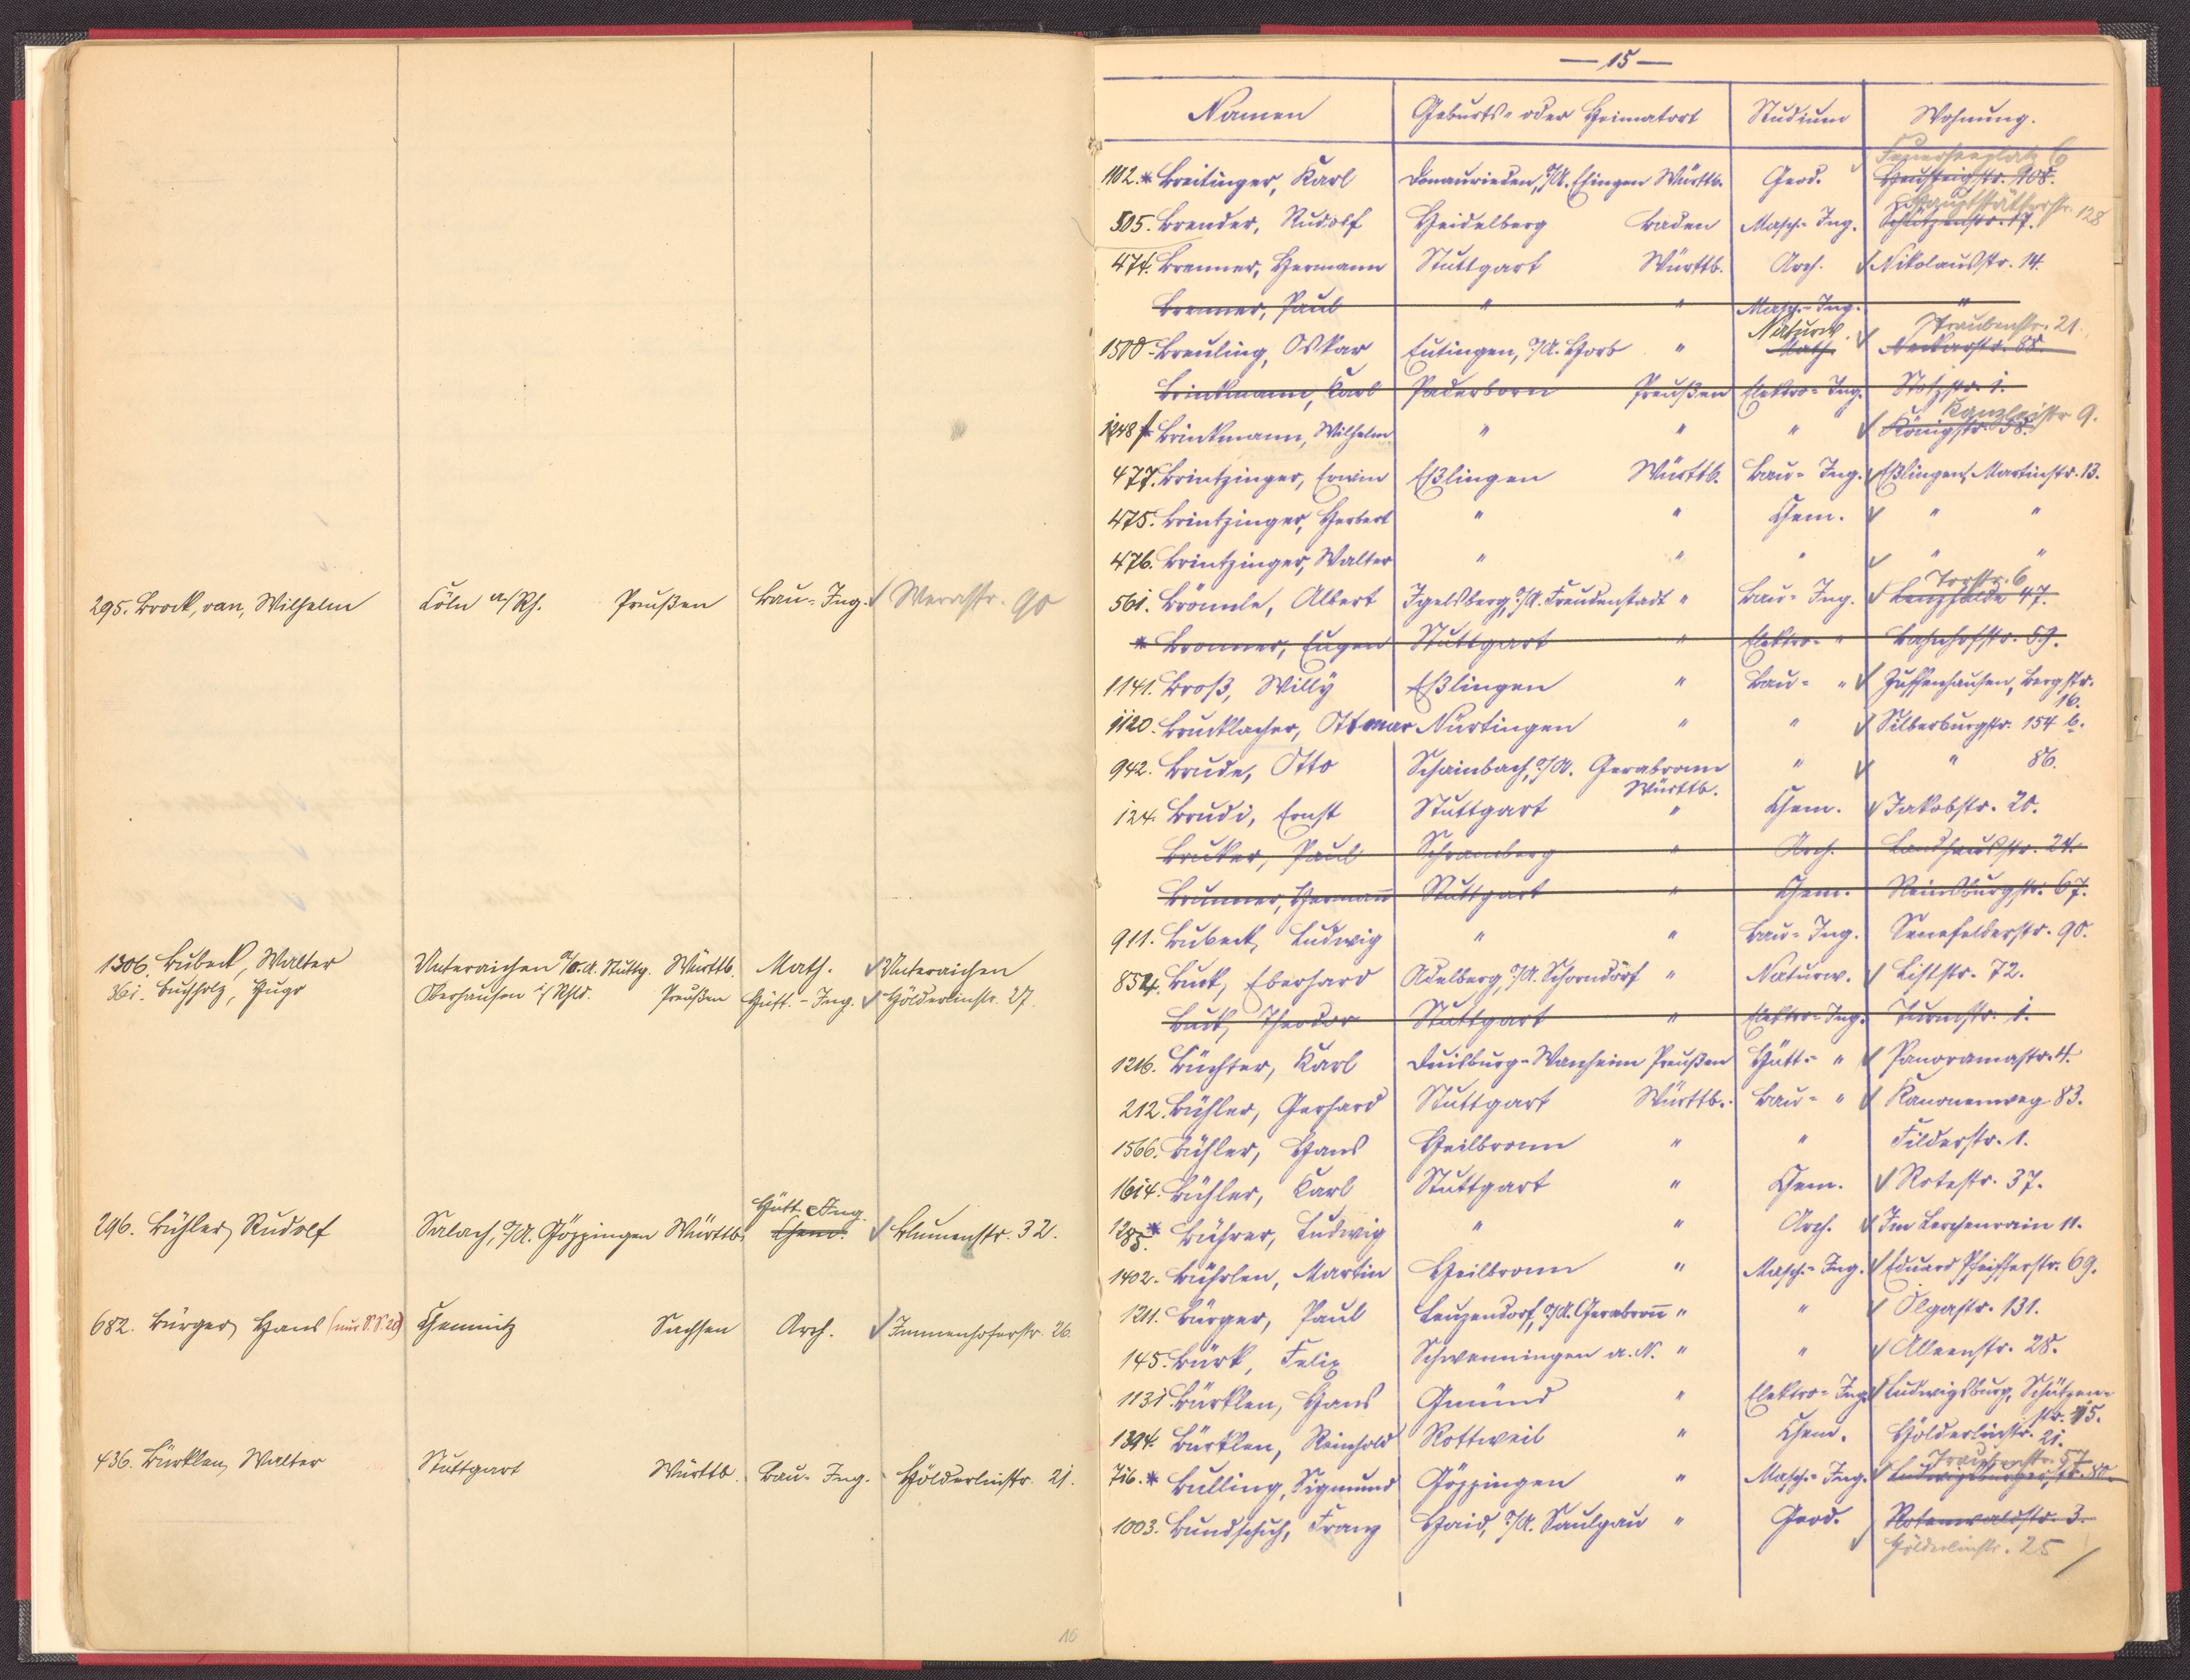 295. Brock, van, Wilhelm Cöln a/Rh. Preußen Bau-Ing. Werastr. 90
1306. Bubeck, Walter Unteraichen O/A. Stuttg. Württb. Math. Unteraichen
361. Buchholz, Hugo Oberhausen i/Rhld. Preußen Hütt.-Ing. Hölderlinstr. 27.
Hütt.-Ing.
296. Bühler, Rudolf Salach, O/A. Göppingen Württb. Chem. Blumenstr. 32.
682. Bürger, Hans (nur S.S. 20) Chemnitz Sachsen Arch. Immenhoferstr. 26.
436. Bürklen, Walter Stuttgart Württb. Bau-Ing. Hölderlinstr. 21.
16
— 15 —
Namen Geburts- oder Heimatort Studium Wohnung.
Feuerseeplatz 6
1102. * Breitinger, Karl Donaurieden, O/A. Ehingen Württb. Geod. Heusteigstr. 90B.
Hauptstätterstr. 128
505. Brender, Rudolf Heidelberg Baden Masch.-Ing. Schützenstr. 17.
474. Brenner, Hermann Stuttgart Württb. Arch. Nikolausstr. 14.
Brenner, Paul " " Masch.-Ing. "
Naturw. Traubenstr. 21.
1500. Breuling, Oskar Eutingen, O/A. Horb " Math. Neckarstr. 88.
Brinkmann, Karl Paderborn Preußen Elektro-Ing.
Kanzleistr. 9.
1248 * Brinkmann, Wilhelm " " " Königstr. 58.
477. Brintzinger, Erwin Eßlingen Württb. Bau-Ing. Eßlingen, Martinstr. 13.
475. Brintzinger, Herbert " " Chem. " "
476. Brintzinger, Walter " " " " "
Torstr. 6
561. Brömle, Albert Igelsberg, O/A. Freudenstadt " Bau-Ing. Lenzhalde 47.
* Bronner, Eugen Stuttgart " Elektro- " Bahnhofstr. 59.
1141. Broß, Willy Eßlingen " Bau- " Zuffenhausen, Bergstr.
16.
1120. Brucklacher, Ottmar Nürtingen " " Silberburgstr. 154 b.
942. Brude, Otto Schainbach, O/A. Gerabronn " " 86.
Württb.
124. Brudi, Ernst Stuttgart " Chem. Jakobstr. 20.
Bruker, Paul Schramberg " Arch. Landhausstr. 24.
Brunner, Hermann Stuttgart " Chem. Reinsburgstr. 67.
911. Bubeck, Ludwig " " Bau-Ing. Senefelderstr. 90.
854. Buck, Eberhard Adelberg, O/A. Schorndorf " Naturw. Liststr. 72.
Buck, Theodor Stuttgart " Elektro-Ing. Turmstr. 1.
1216. Büchter, Karl Duisburg-Wanheim Preußen Hütt.- " Panoramastr. 4.
212. Bühler, Gerhard Stuttgart Württb. Bau- " Kanonenweg 83.
1566. Bühler, Hans Heilbronn " " Filderstr. 1.
1614. Bühler, Karl Stuttgart " Chem. Rotestr. 37.
1285. * Bührer, Ludwig " " Arch. Im Lerchenrain 11.
1402. Bührlen, Martin Heilbronn " Masch.-Ing. Eduard Pfeifferstr. 69.
1211. Bürger, Paul Leuzendorf, O/A. Gerabronn " " Olgastr. 131.
145. Bürk, Felix Schwenningen a. N. " " Alleenstr. 28.
1131. Bürklen, Hans Gmünd " Elektro-Ing. Ludwigsburg, Schützen-
str. 15.
1394. Bürklen, Reinhold Rottweil " Chem. Hölderlinstr. 21.
Traubenstr. 57
716. * Bulling, Sigmund Göppingen " Masch.-Ing. Ludwigsburgerstr.
1003. Bundschuh, Franz Haid, O/A. Saulgau " Geod. Rotenwaldstr. 3.
Hölderlinstr. 25